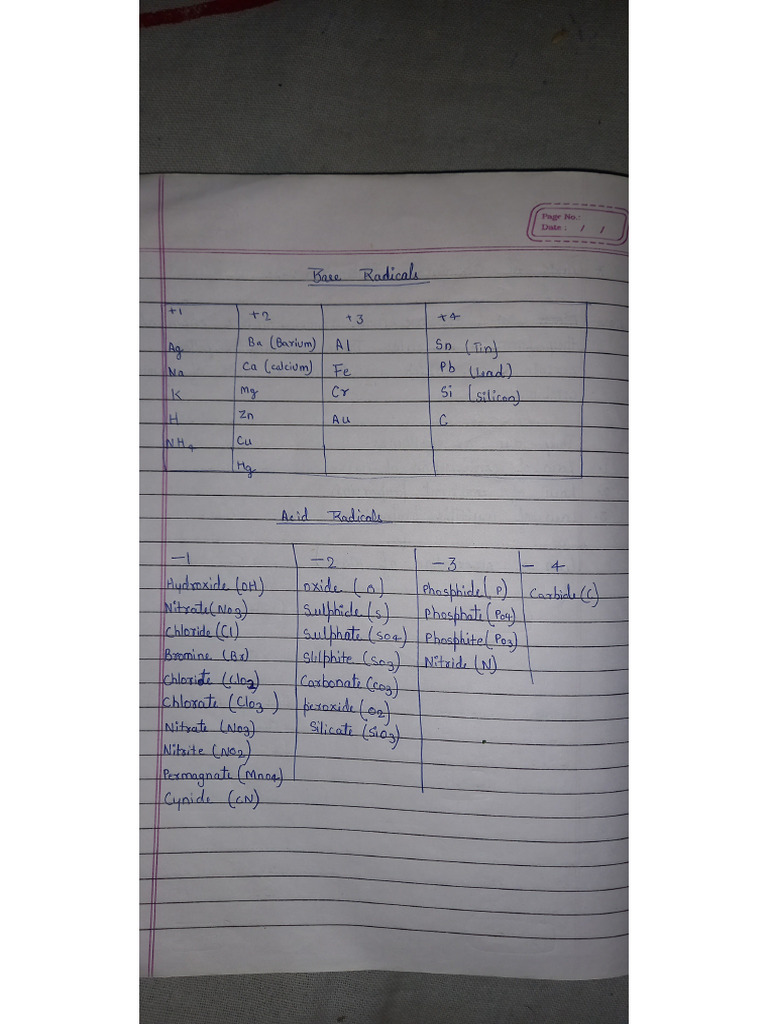 Page No.:
Date : / /
Base Radicals
+1 +2 +3 +4
Ag Ba (Barium) Al Sn (Tin)
Na Ca (calcium) Fe Pb (Lead)
K Mg Cr Si (Silicon)
H Zn Au C
NH4 Cu
Hg
Acid Radicals
-1 -2 -3 -4
Hydroxide (OH) oxide (O) Phosphide (P) Carbide (C)
Nitrate (NO3) Sulphide (S) Phosphate (PO4)
Chloride (Cl) Sulphate (SO4) Phosphite (PO3)
Bromine (Br) Sulphite (SO3) Nitride (N)
Chlorite (ClO2) Carbonate (CO3)
Chlorate (ClO3) peroxide (O2)
Nitrate (NO3) Silicate (SiO3)
Nitrite (NO2)
Permagnate (MnO4)
Cynide (CN)